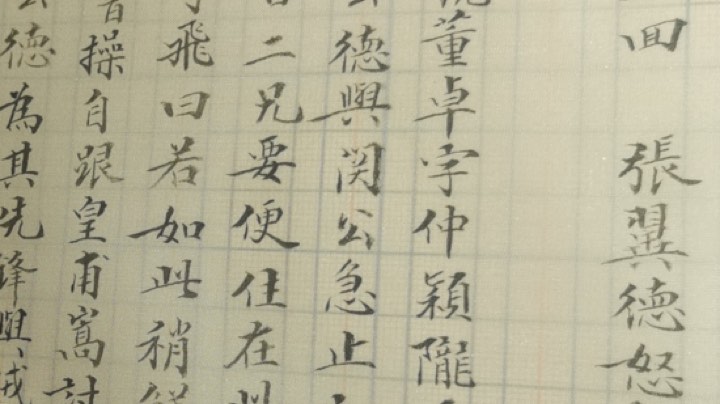 回 張翼德怒
董卓字仲穎隴
德與関公急止
二兄要便住在此
飛曰若如此稍
操自跟皇甫嵩討
德為其先鋒與戎